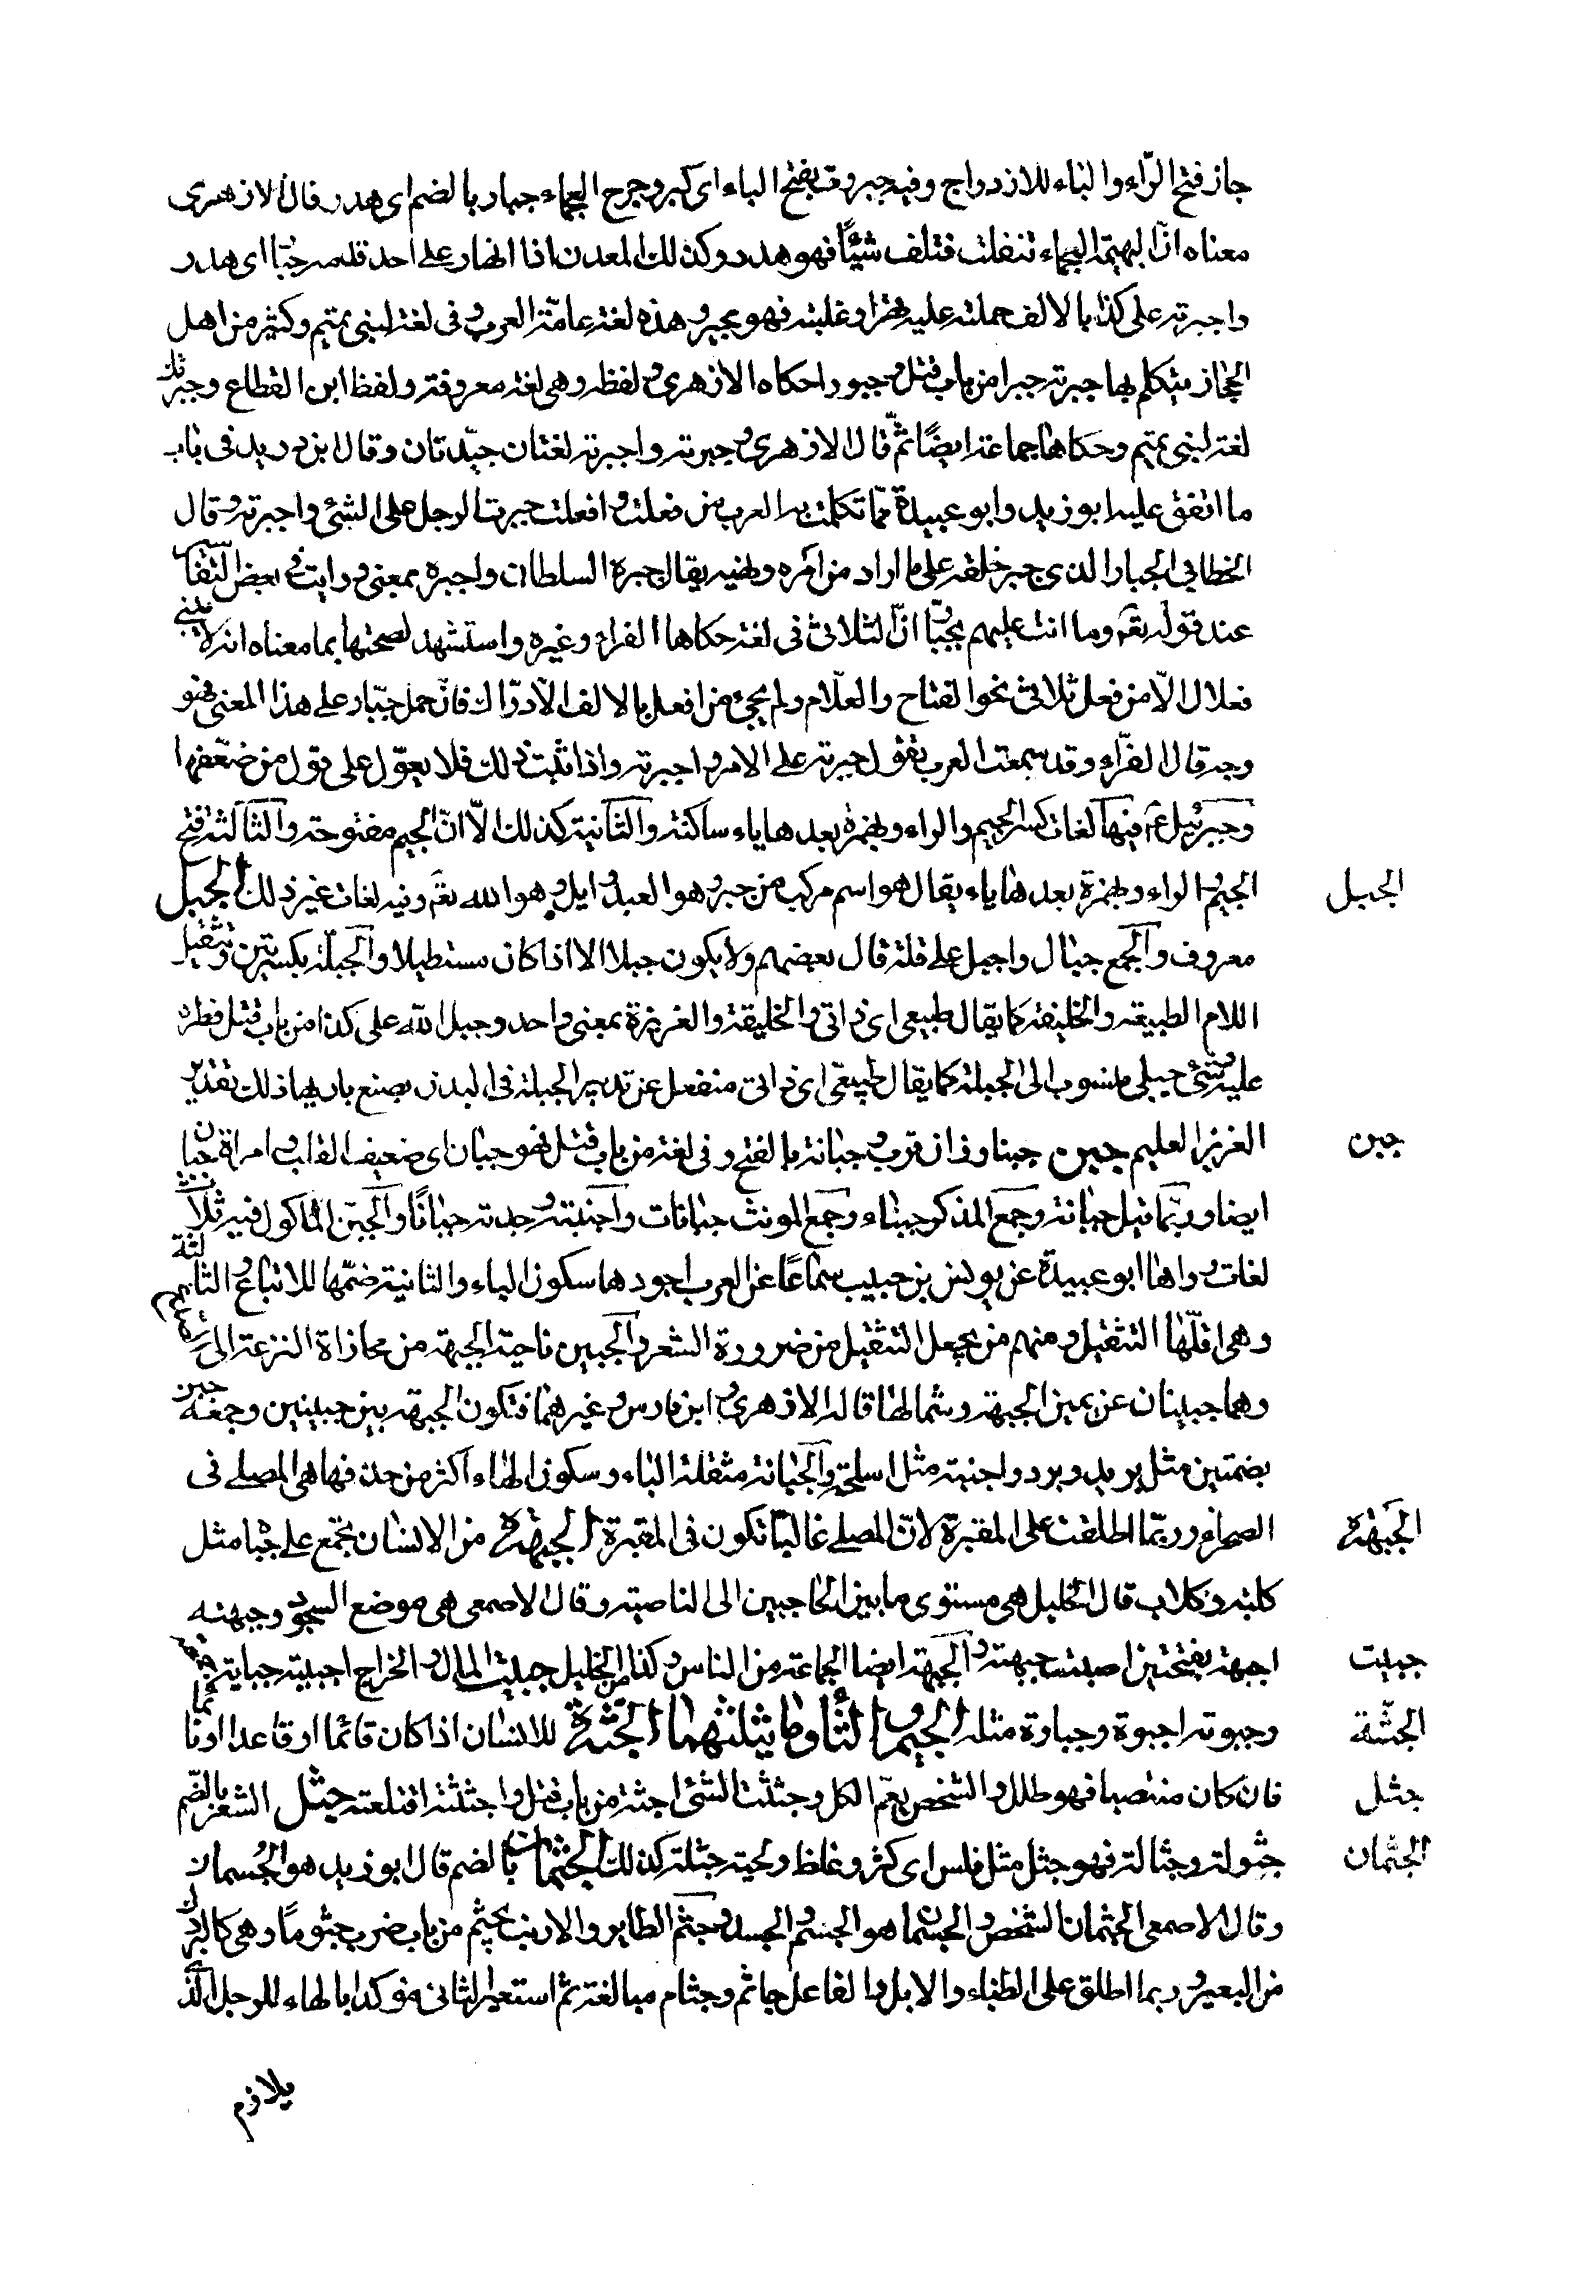 جاز فتح الرّاء والباء للازدواج وفيه جبروت بفتح الباء اى كبر وجرح العجماء جبار بالضم اى هدر قال الازهرى
معناه انّ البهيمة العجماء تنفلت فتتلف شيئًا فهو هدر وكذلك المعدن اذا انهار على احد فدمه جبار اى هدر
واجبرته على كذا بالالف حملته عليه قهرا وغلبة فهو مجبر هذه لغة عامّة العرب وفى لغة لبنى تميم وكثير من اهل
الحجاز يتكلم بها جبرته جبرا من باب قتل وجبورا حكاه الازهرى ولفظه وهى لغة معروفة ولفظ ابن القطاع وجبرتك
لغة لبنى تميم وحكاها جماعة ايضًا ثمّ قال الازهرى وجبرته واجبرته لغتان جيّدتان وقال ابن دريد فى باب
ما اتفق عليه ابو زيد وابو عبيدة ممّا تكلمت به العرب من فعلت وافعلت جبرت الرجل على الشئ واجبرته وقال
الخطابى الجبار الذى جبر خلقه على ما اراد من امره ونهيه يقال جبره السلطان واجبره بمعنى ورايت فى بعض التفاسير
عند قوله تع وما انت عليهم بجبّار انّ الثلاثى فى لغة حكاها الفراء وغيره واستشهد لصحتها بما معناه انه لا يبنى
فعلال الّا من فعل ثلاثى نحو الفتاح والعلّام ولم يجئ من افعل بالالف الّا درّاك فان حمل جبّار على هذا المعنى فهو
وجه قال الفرّاء وقد سمعت العرب تقول جبرته على الامر واجبرته واذا ثبت ذلك فلا يعوّل على قول من ضعّفها
وجبرئيل عم فيها لغات كسر الجيم والراء وبهمزة بعدها ياء ساكنة والثانية كذلك الّا انّ الجيم مفتوحة والثالثة فتح
الجيم والراء وبهمزة بعدها ياء يقال هو اسم مركب من جبر وهو العبد وايل وهو الله تع وفيه لغات غير ذلك الجبل
الجبل
معروف والجمع جبال واجبل على قلة قال بعضهم ولا يكون جبلا الا اذا كان مستطيلا والجبلّة بكسرتين وتثقيل
اللام الطبيعة والخليقة كما يقال طبيعى اى ذاتى والخليقة والغريزة بمعنى واحد وجبل الله على كذا من باب قتل فطره
عليه وشئ جبلى منسوب الى الجبلة كما يقال طبيعى اى ذاتى منفعل عن تدبير الجبلة فى البدن بصنع باريها ذلك تقدير
العزيز العليم جبن جبنا وزان قرب وجبانة بالفتح وفى لغة من باب قتل فهو جبان اى ضعيف القلب وامراة جبان
جبن
ايضا وربّما قيل جبانة وجمع المذكر جبناء وجمع المونث جبانات واجبنته وجدته جبانًا والجبن الماكول فيه ثلاث
لغات رواها ابو عبيدة عن يونس بن حبيب سماعًا عن العرب اجودها سكون الباء والثانية ضمّها للاتباع والثالثة
وهى اقلّها التثقيل ومنهم من يجعل التثقيل من ضرورة الشعر والجبين ناحية الجبهة من محاذاة النزعة الى
وهما جبينان عن يمين الجبهة وشمالها قاله الازهرى وابن فارس وغيرهما فتكون الجبهة بين جبينين وجمعه جبن
بضمتين مثل بريد وبرد واجبنة مثل اسلحة والجبّانة مثقلة الباء وسكون الهاء اكثر من حذفها هى المصلى فى
الصحراء وربّما اطلقت على المقبرة لانّ المصلى غالبًا تكون فى المقبرة الجبهة من الانسان يجمع على جباه مثل
الجبهة
كلبة وكلاب قال الخليل هى مستوى ما بين الحاجبين الى الناصية وقال الاصمعى هى موضع السجود وجبهته
اجبهه بفتحتين اصبت جبهته والجبهة ايضا الجماعة من الناس وكذا من الخليل جبيت المال والخراج اجبيه جباية
جبيت
وجبوته اجبوه وجباوة مثله الجيم والثاء وما يثلثهما الجثة للانسان اذا كان قائما او قاعدا او نائما
الجثّة
فان كان منتصبا فهو طلل والشخص يعمّ الكل وجثثت الشئ اجثه من باب قتل واجتثثته اقتلعته جثل الشعر بالضم
جثل
جثولة وجثالة فهو جثل مثل فلس اى كثر وغلظ ولحية جثلة كذلك الجثمان بالضم قال ابو زيد هو الجُسمان
الجثمان
وقال الاصمعى الجثمان الشخص والجسمان هو الجسم والجسد وجثم الطاير والارنب يجثم من باب ضرب جثومًا وهى كالبروك
من البعير وربما اطلق على الظباء والابل والفاعل جاثم وجثام مبالغة ثم استعير الثانى مؤكدا بالهاء للرجل الذى
يلازم